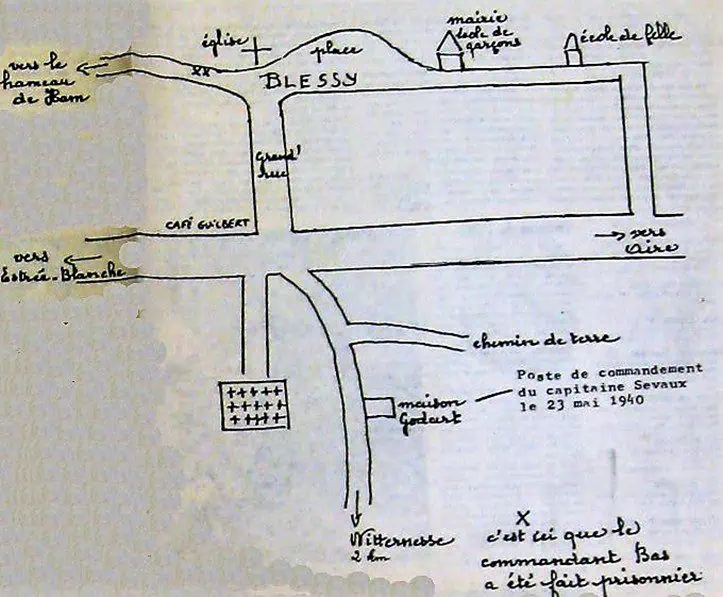 église
place
mairie
école de
garçons
école de fille
vers le
hameau
de Ham
xx
BLESSY
Grand'
rue
CAFÉ GUILBERT
vers
Estrée-Blanche
vers
Aire
chemin de terre
Poste de commandement
du capitaine Sevaux
le 23 mai 1940
maison
Godart
Witternesse
2 km
X
c'est ici que le
commandant Bas
a été fait prisonnier